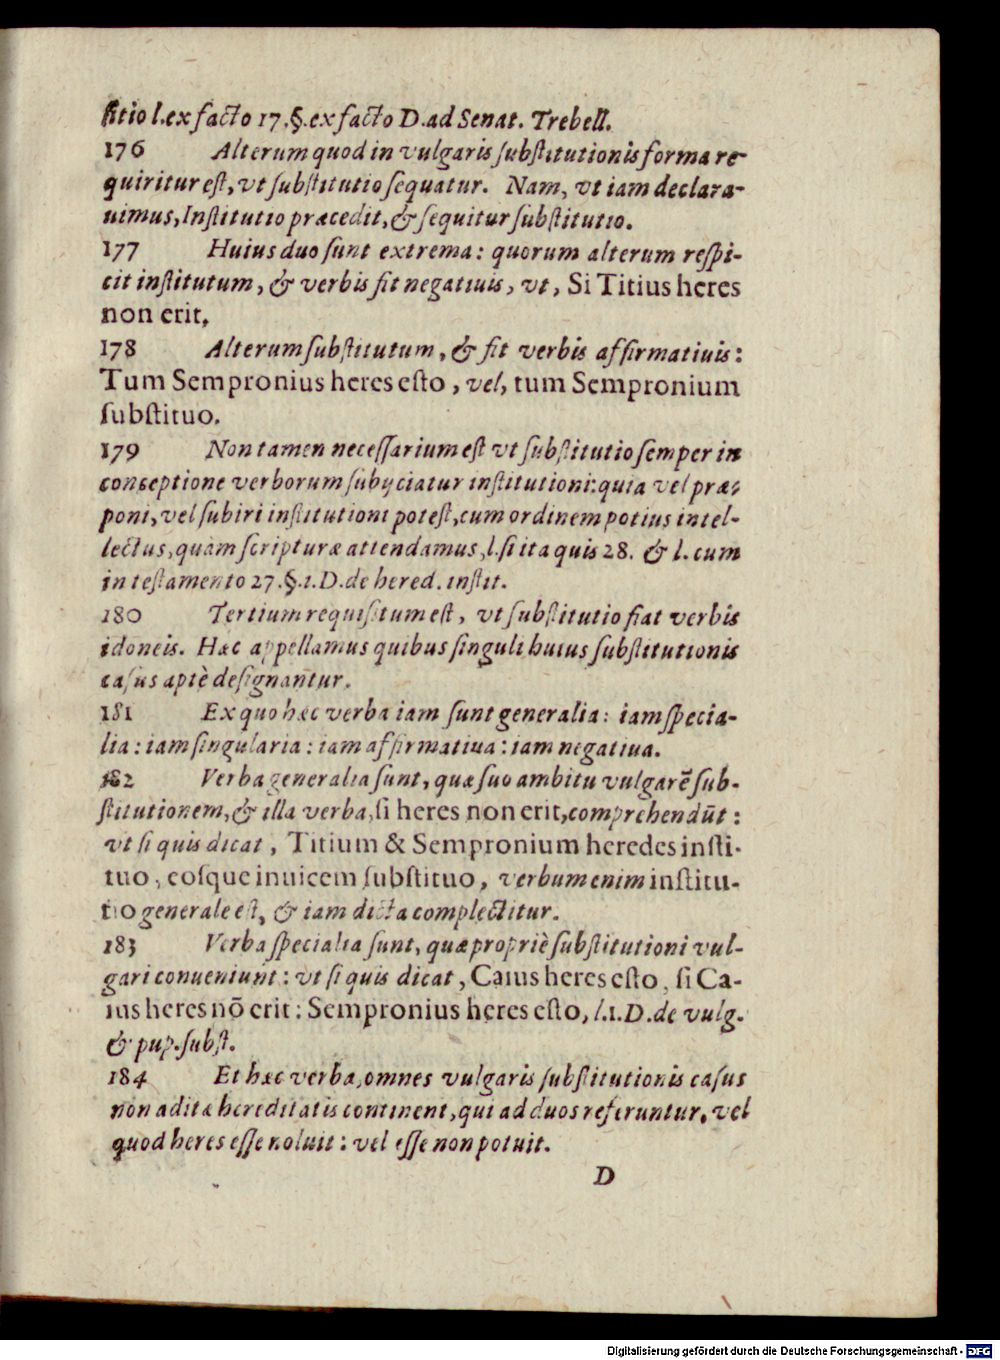 ſitio l.ex facto 17.§.ex facto D.ad Senat. Trebell.
176 Alterum quod in vulgaris ſubſtitutionis forma re-
quiritur eſt, vt ſubſtitutio ſequatur. Nam, vt iam declara-
uimus, Inſtitutio præcedit, & ſequitur ſubſtitutio.
177 Huius duo ſunt extrema: quorum alterum reſpi-
cit inſtitutum, & verbis fit negatiuis, vt, Si Titius heres
non erit,
178 Alterum ſubſtitutum, & fit verbis affirmatiuis:
Tum Sempronius heres eſto, vel, tum Sempronium
ſubſtituo.
179 Non tamen neceſſarium eſt vt ſubſtitutio ſemper in
conceptione verborum ſubijciatur inſtitutioni: quia vel præ-
poni, vel ſubiri inſtitutioni poteſt, cum ordinem potius intel-
lectus, quàm ſcripturæ attendamus, l.ſi ita quis 28. & l. cum
in teſtamento 27.§.1.D.de hered. inſtit.
180 Tertium requiſitum eſt, vt ſubſtitutio fiat verbis
idoneis. Hæc appellamus quibus ſinguli huius ſubſtitutionis
caſus aptè deſignantur.
181 Ex quo hæc verba iam ſunt generalia: iam ſpecia-
lia: iam ſingularia: iam affirmatiua: iam negatiua.
182 Verba generalia ſunt, quæ ſuo ambitu vulgarē ſub-
ſtitutionem, & illa verba, ſi heres non erit, comprehendūt:
vt ſi quis dicat, Titium & Sempronium heredes inſti-
tuo, eoſque inuicem ſubſtituo, verbum enim inſtitu-
tio generale eſt, & iam dicta complectitur.
183 Verba ſpecialia ſunt, quæ propriè ſubſtitutioni vul-
gari conueniunt: vt ſi quis dicat, Caius heres eſto, ſi Ca-
ius heres nō erit: Sempronius heres eſto, l.1.D.de vulg.
& pup.ſubſt.
184 Et hæc verba, omnes vulgaris ſubſtitutionis caſus
non aditæ hereditatis continent, qui ad duos referuntur, vel
quod heres eſſe noluit: vel eſſe non potuit.
D
Digitalisierung gefördert durch die Deutsche Forschungsgemeinschaft - DFG